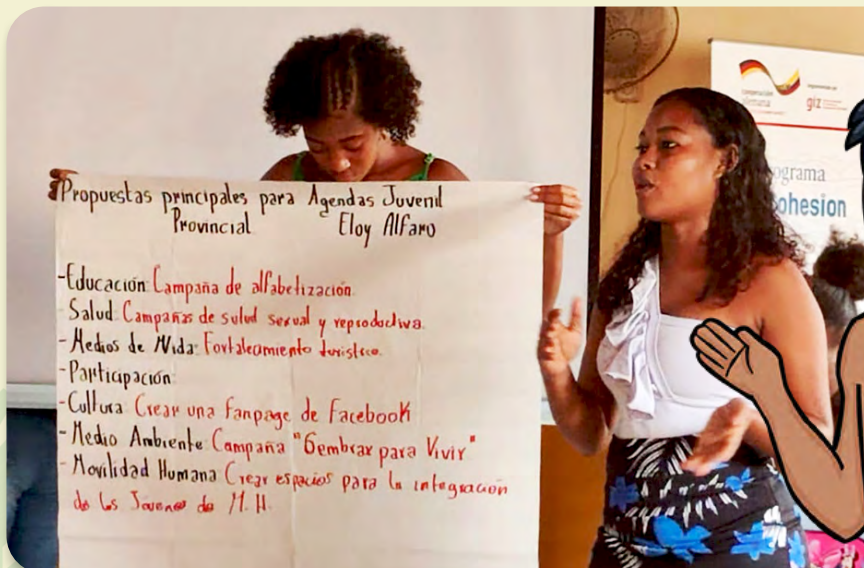 Propuestas principales para Agendas Juvenil
Provincial Eloy Alfaro
-Educación: Campaña de alfabetización.
Salud: Campañas de salud sexual y reproductiva.
- Medios de Vida: Fortalecimiento turístico.
- Participación:
-Cultura Crear una fanpage de Facebook
- Medio Ambiente: Campaña "Sembrar para Vivir"
- Movilidad Humana Crear espacios para la integración
de los Jovenes de M.H.
cooperación
alemana
giz
ograma
ohesion